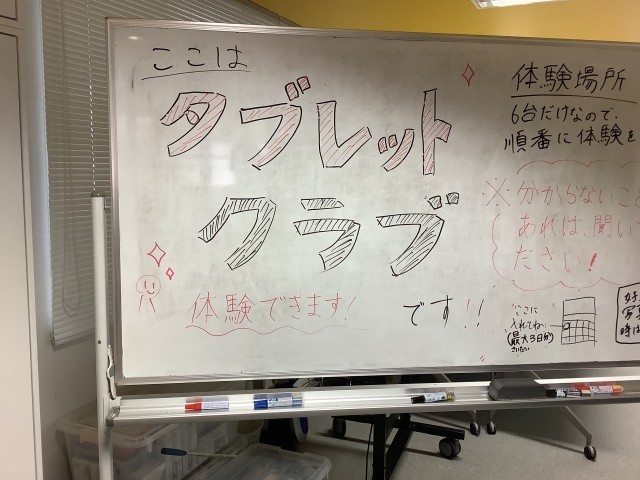 ここは
タブレット
クラブ
体験できます!
です!!
体験場所
6台だけなので、
順番に体験を
※分からないこと
あれば、聞い
ださい!
ここに
入れてね
(最大3日か